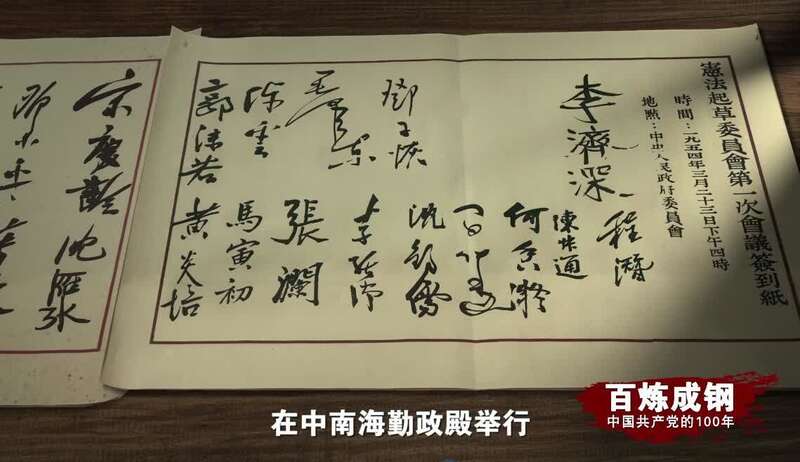 憲法起草委員會第一次會議簽到紙
時間：一九五四年三月二十三日下午四時
地點：中央人民政府委員會
李濟深
程潛
鄧子恢
陳叔通
何香凝
毛澤東
沈鈞儒
陳雲
李維漢
張瀾
郭沫若
馬寅初
黃炎培
宋慶齡
沈雁冰
在中南海勤政殿举行
百炼成钢
中国共产党的100年